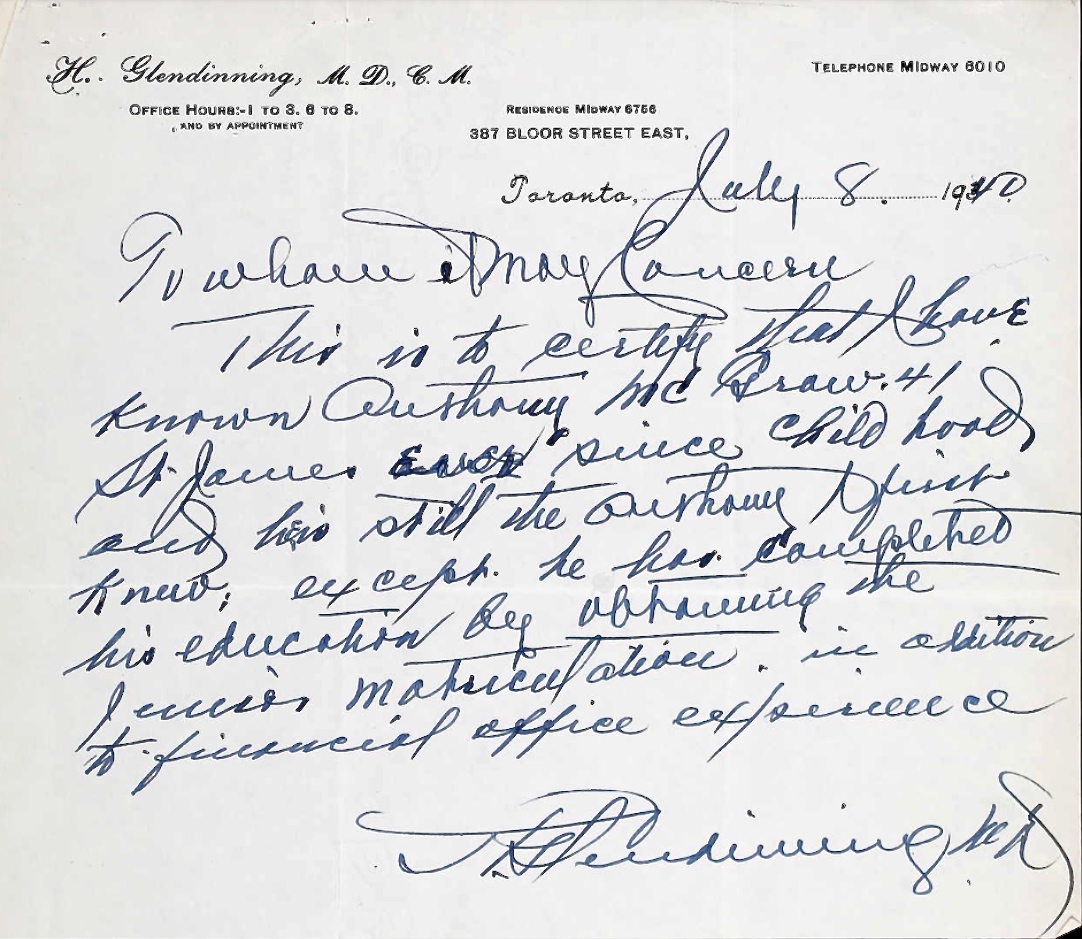 H. Glendinning, M. D., C. M.
TELEPHONE MIDWAY 6010
OFFICE HOURS:-1 TO 3. 6 TO 8.
AND BY APPOINTMENT
RESIDENCE MIDWAY 6756
387 BLOOR STREET EAST,
Toronto, July 8. 1940
To whom it May Concern
This is to certify that I have
known Anthony McGraw. 41
St. James since child hood
and he is still the Anthony I first
knew; except. he has completed
his education by obtaining the
Junior matriculation. in addition
to financial office experience
H Glendinning MD